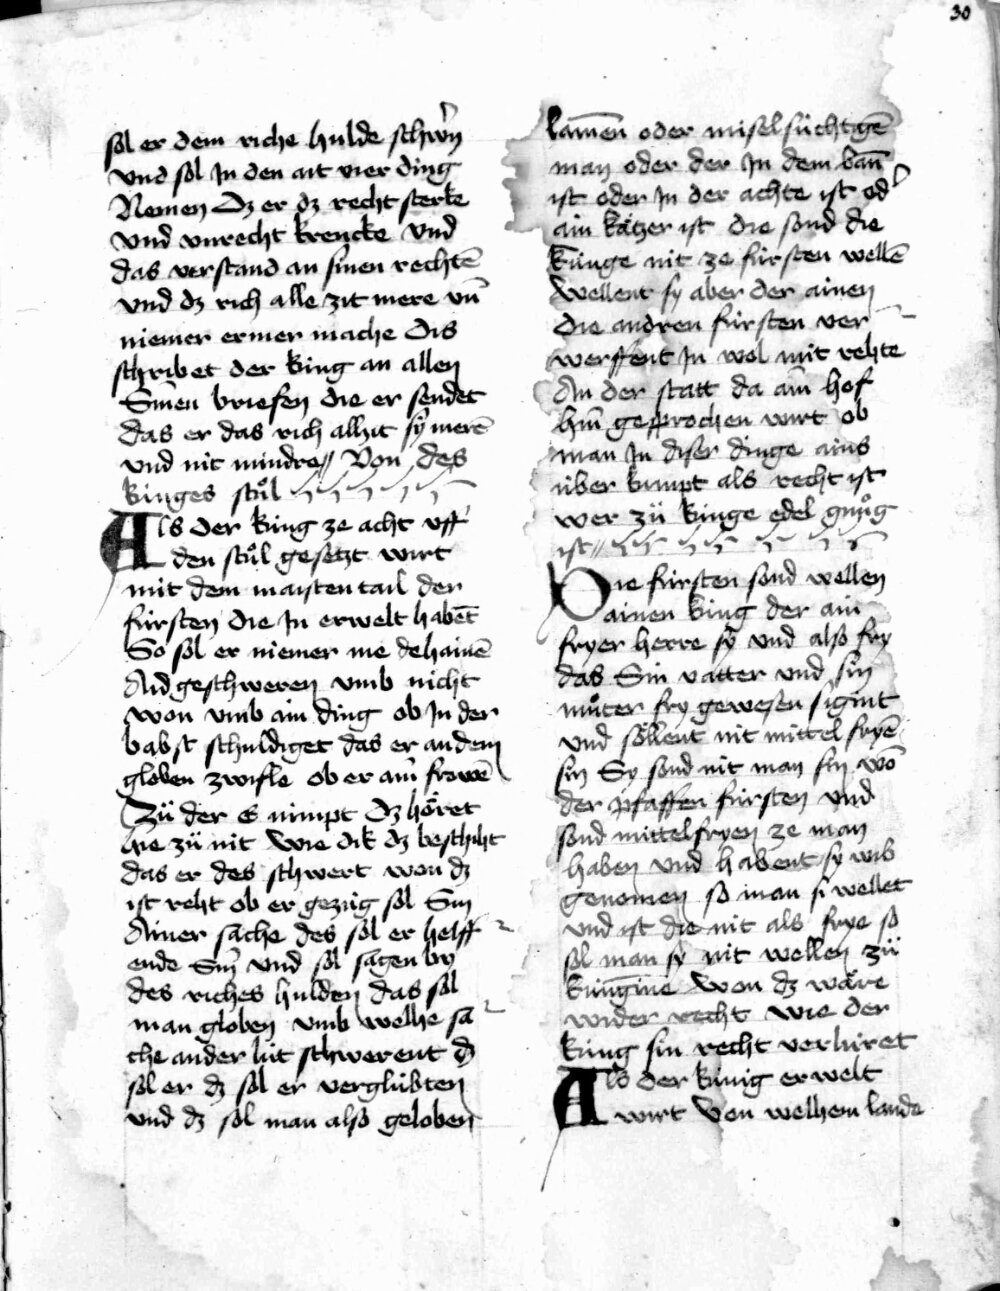 30
sol er dem riche hulde schwˀn
vnd sol Jn den ait vier ding
Nemen Dz er dz recht sterke
vnd vnrecht krencke vnd
das verstand an sinen rechtē
vnd dz rich alle zit mere vn̄
niemer ermer mache dis
schribet der king an allen
Sinen briefen die er sendet
das er das rich allzit sy merē
vnd nit mindre// Von des
kinges stůl
Als der king ze acht vff
den stůl gesetzt wirt
mit dem maisten tail der
fürsten die Jn erwelt habēt
So sol er niemer me dehainē
Aid geschweren vmb nicht
won vmb ain ding ob Jn der
babst schuldiget das er an dem
globen zwifle ob er ain frowē
Zü der E nimpt Dz höret
hie zü nit Wie dik dz beschiht
das er des schwert won dz
ist reht ob er gezüg sol Sin
Ainer sache des sol er helff
ende Sin vnd sol sagen by
des riches hulden das sol
man globen vmb welhe sa
che ander lüt schwerent d
sol er dz sol er verglübten
vnd dz sol man also geloben
lamen oder miselsüchtigē
man oder der Jn dem ban̄
ist oder Jn der achte ist odˀ
ain kätzer ist die sond die
künge nit ze fürsten wellē
Wellent sy aber der ainen
die andren fürsten ver
werffent Jn wol mit rehte
An der statt da ain hof
hin gesprochen wirt ob
man Jn diser dinge ains
über kumpt als recht ist
wer zü kinge edel gnůg
ist//
Die fürsten sond wellen
ainen king der ain
fryer herre sy vnd also fry
das Sin vatter vnd sin
můter fry gewesen sigint
vnd söllent nit mittel fryē
sin Sy sond nit man sin wō
der pfaffen fürsten vnd
sond mittelfryen ze man
haben vnd habent sy wib
genomen so man si wellet
vnd ist die nit als frye so
sol man sy nit wellen zü
künginne Won dz wäre
wider recht wie der
küng sin recht verlüret
Als der künig erwelt
wirt Von welhem lande